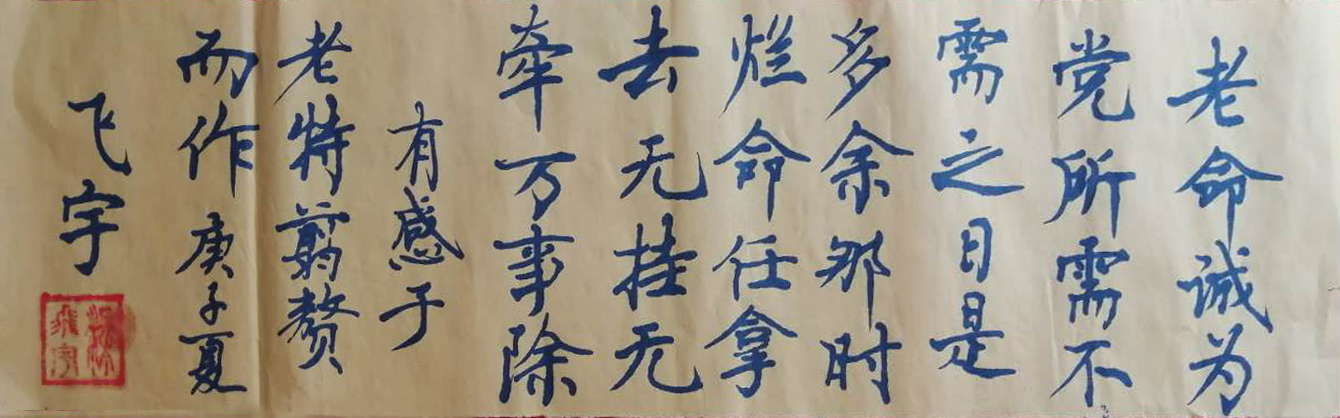 老命诚为
党所需不
需之日是
多余那时
烂命任拿
去无挂无
牵万事除
有感于
老特剪赘
而作庚子夏
飞宇